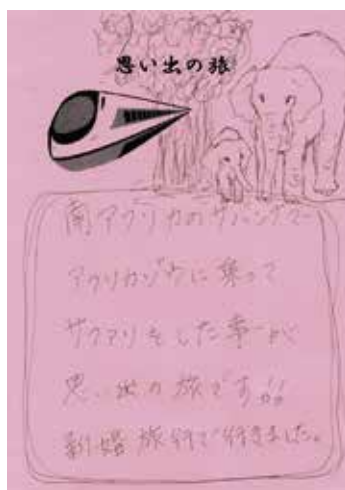 思い出の旅
南アフリカのサバンナで
アフリカゾウに乗って
サファリをした事が
思い出の旅です!!
新婚旅行で行きました。